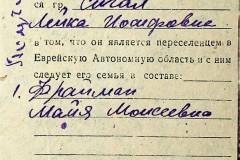 ся гр. Сигал
Лейка Иосифовне
в том, что он является переселенцем в
Еврейскую Автономную область и с ним
следует его семья в составе:
1. Фрайман
Майя Моисеевна